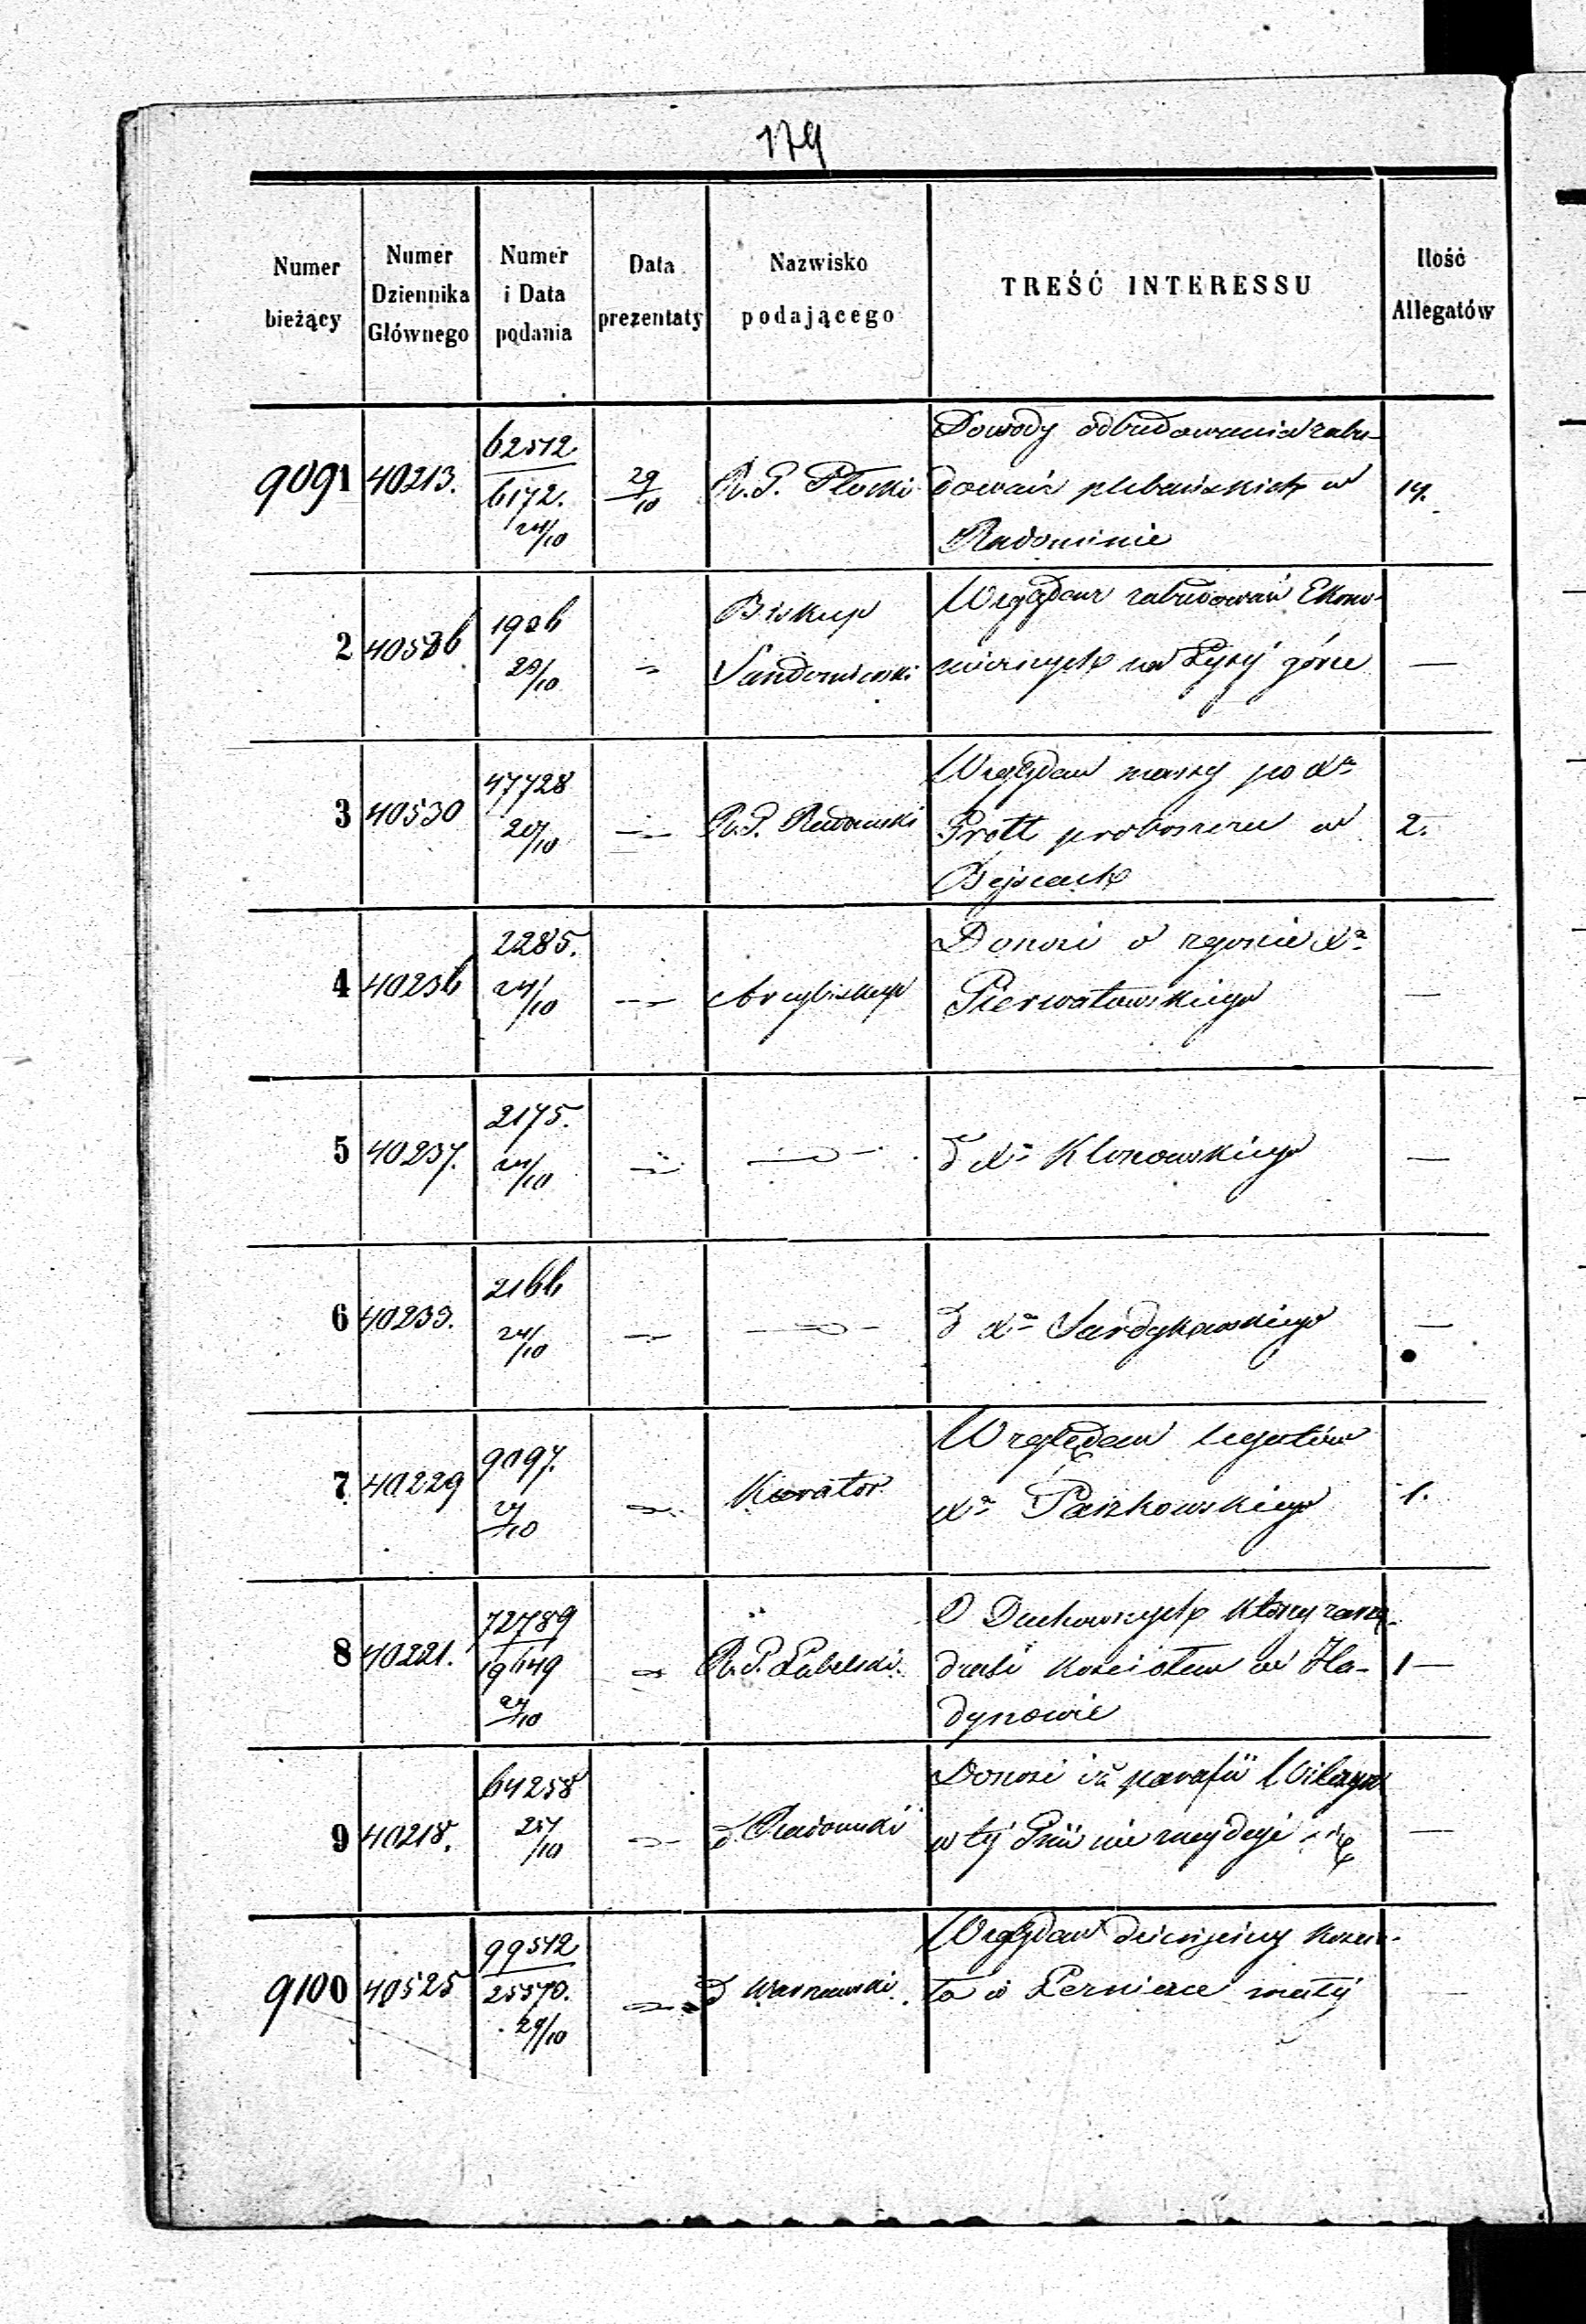 179
Numer bieżący
Numer Dziennika Głównego
Numer i Data podania
Data prezentaty
Nazwisko podającego
TREŚĆ INTERESSU
Ilość Allegatów
9091 40213. 62512 6172. 24/10 29/10 R. G. Płocki
Dowody odbudowania zabu-
dowań plebańskich w
Radominie
2 1926 Biskup
Sandomierski
Względem zabudowań Ekono-
micznych na Łysej górze
—
3 40530 47728 R. G. Radomski
Względem massy po Xe
Prott proboszczu w
Bejscach
2.
4 40236 2285. 24/10 Arcybiskup
Donosi o zgonie Xa
—
5 40237. 2175. 24/10
d Xa Klonowskiego
—
6 40233. 2166 24/10
d Xa
—
7 40229 9097. Kurator
Względem legatów
Xa Paszkowskiego
1.
8 40221. 72789 19649 27/10 R. G. Lubelski
O Duchownych którzy zarzą-
dzali kościołem w Ha-
dynowie
1 —
9 40218. 64258 /10 d. Radomski
Donosi iż parafii
w tej Gnii nie znajduje się
—
9100 40525 99512 25570. 29/10 d Warszawski
Względem dziesięciny kościo-
ła w małej